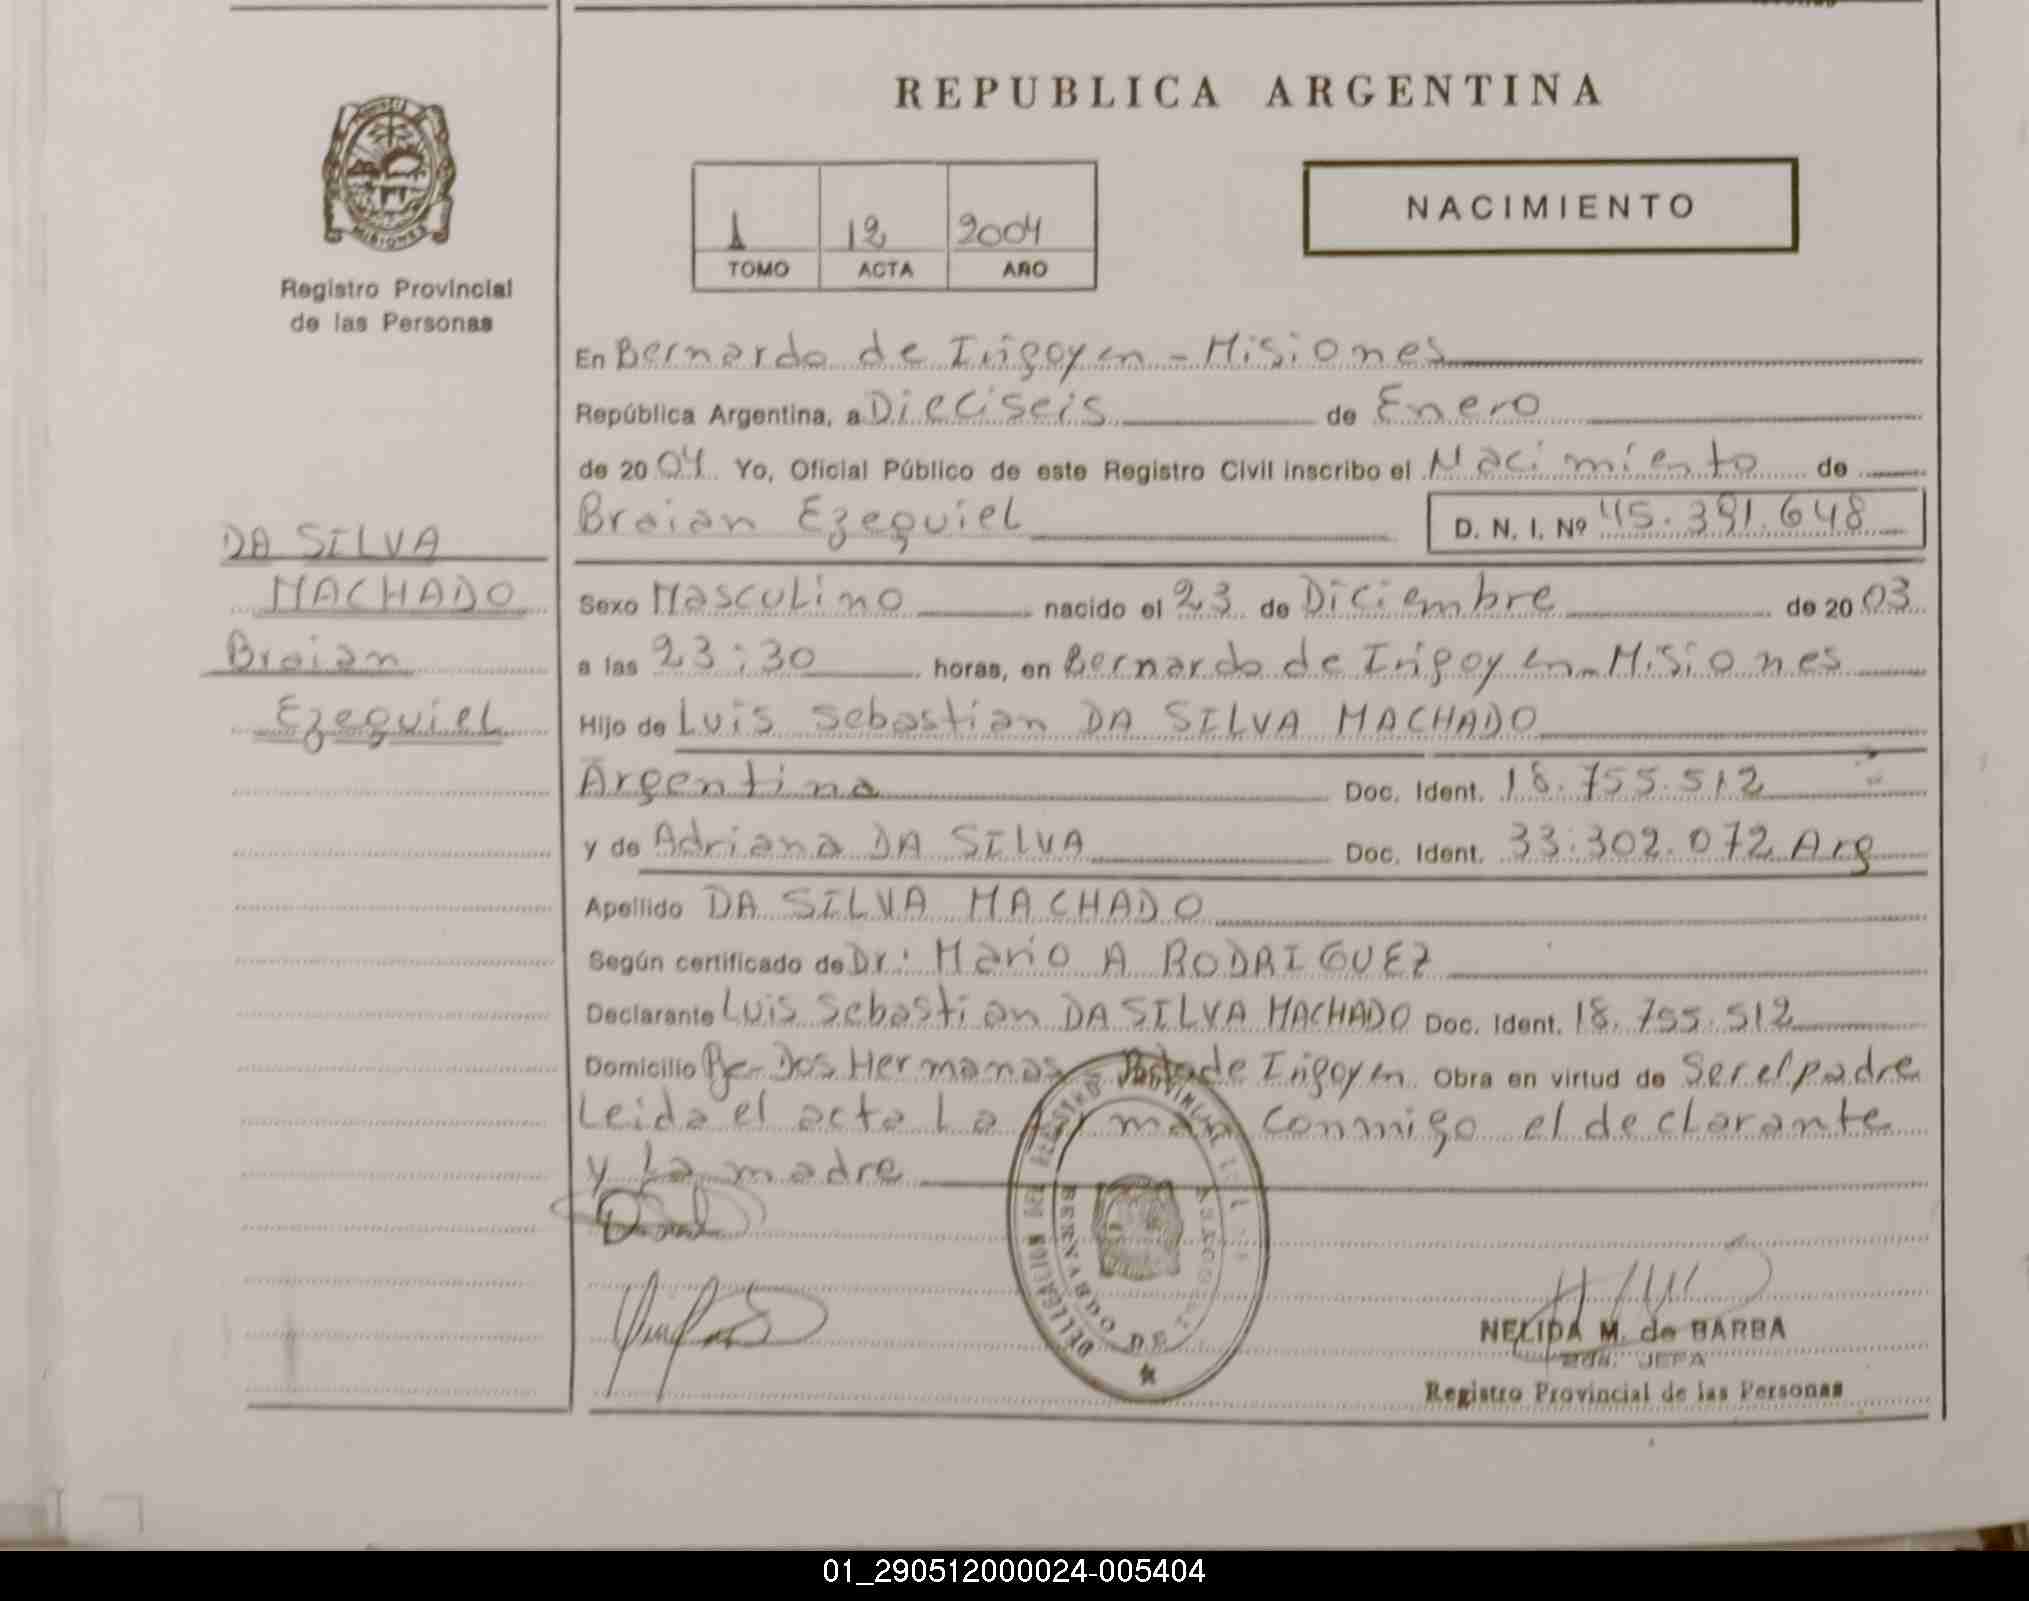 REPUBLICA ARGENTINA
MISIONES
Registro Provincial
de las Personas
1 12 2004
TOMO ACTA AÑO
NACIMIENTO
En Bernardo de Irigoyen - Misiones
República Argentina, a Dieciseis de Enero
de 2004 Yo, Oficial Público de este Registro Civil inscribo el Nacimiento de
Braian Ezequiel D. N. I. Nº 45.391.648
DA SILVA
MACHADO
Braian
Ezequiel
Sexo Masculino nacido el 23 de Diciembre de 2003
a las 23:30 horas, en Bernardo de Irigoyen - Misiones
Hijo de Luis Sebastian DA SILVA MACHADO
Argentina Doc. Ident. 18.755.512
y de Adriana DA SILVA Doc. Ident. 33.302.072 Arg
Apellido DA SILVA MACHADO
Según certificado de Dr: Mario A RODRIGUEZ
Declarante Luis Sebastian DA SILVA MACHADO Doc. Ident. 18.755.512
Domicilio Dos Hermanas de Irigoyen Obra en virtud de Ser el padre
Leida el acta La conmigo el declarante
y La madre
BERNARDO DE
NELIDA M. de BARBA
JEFA
Registro Provincial de las Personas
01_290512000024-005404